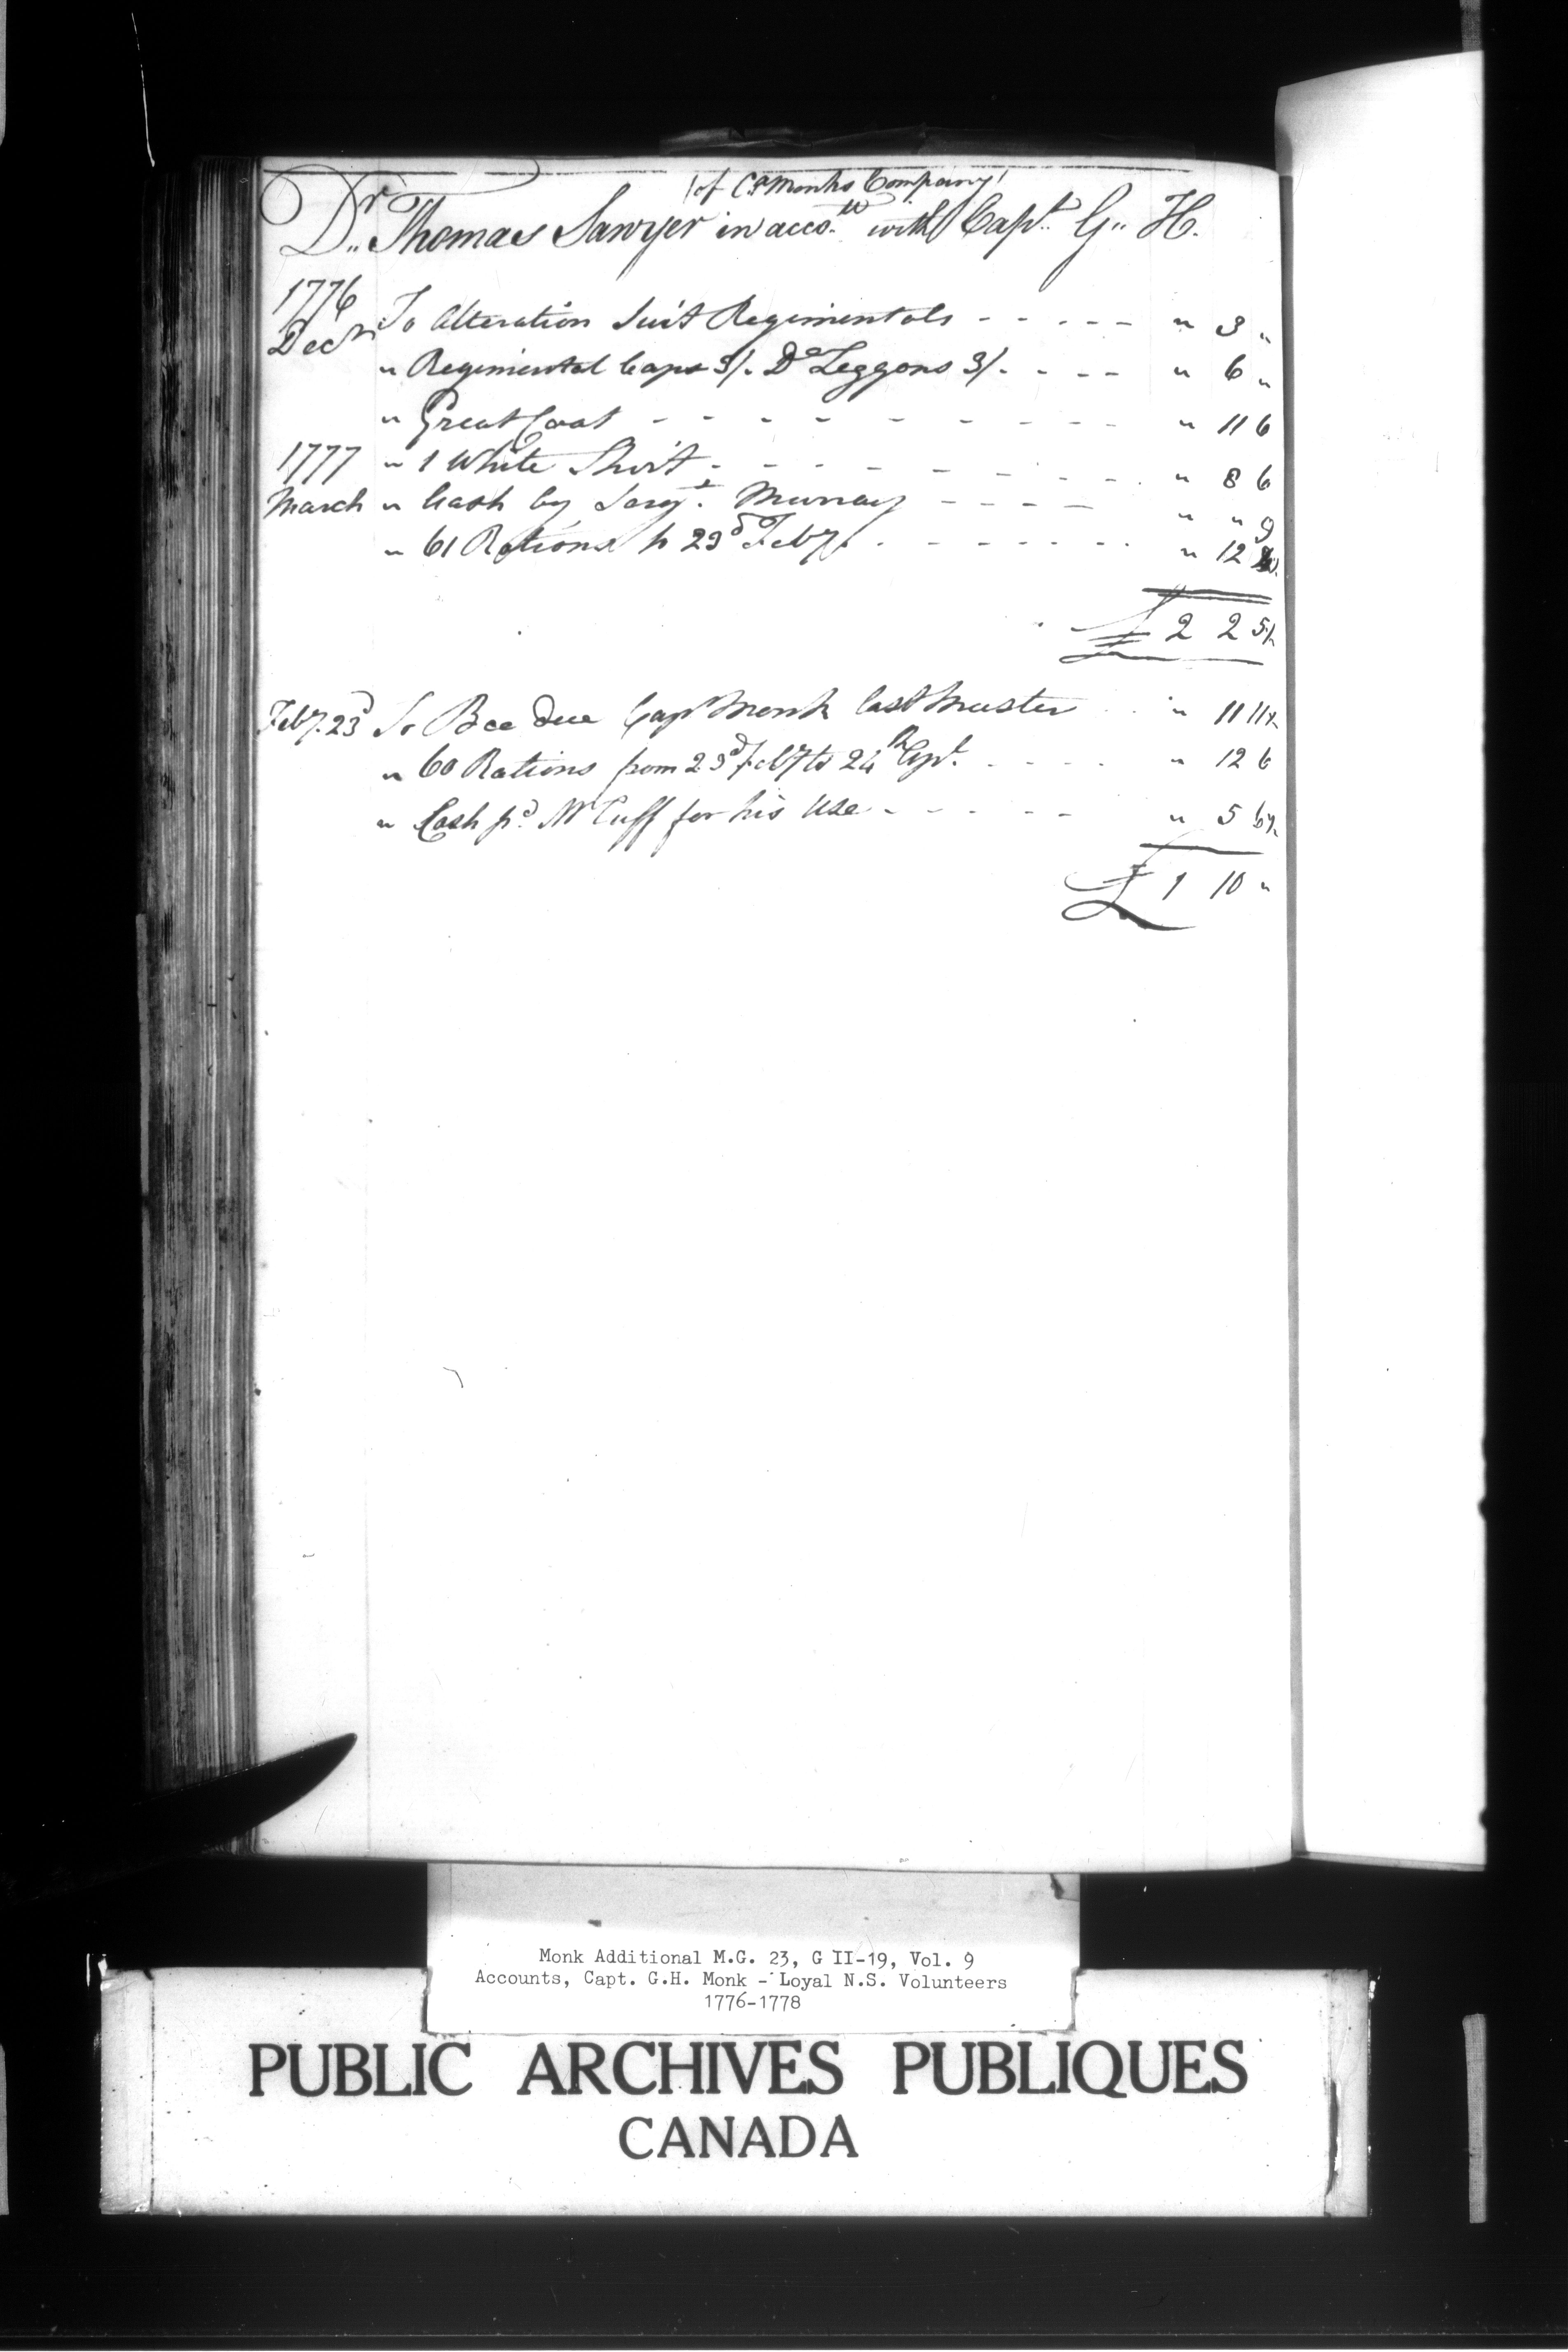 (of C.P Monks Company)
Dr. Thomas Sawyer in acco.tt with Capt. G.. H.
1776
Decr To Alteration Suit Regimentals - - - - - " 3 "
" Regimental Caps 3/. Do Leggons 3/. - - - - " 6 "
" Great Coat - - - - - - - - - " 11 6
1777 " 1 White Shirt - - - - - - - - " 8 6
March " Cash by Sergt. Murray - - - - - " " 9
" 61 Rations to 23d Feby. - - - - - - - " 12
£ 2 2 5½
Feby. 23d To Bce due Capt Monk last Muster " 11 11½
" 60 Rations from 23d Feby to 24th Apl. - - - - " 12 6
" Cash pd. Mr Cuff for his Use - - - - - " 5 6½
£ 1 10 "
Monk Additional M.G. 23, G II-19, Vol. 9
Accounts, Capt. G.H. Monk - Loyal N.S. Volunteers
1776-1778
PUBLIC ARCHIVES PUBLIQUES
CANADA